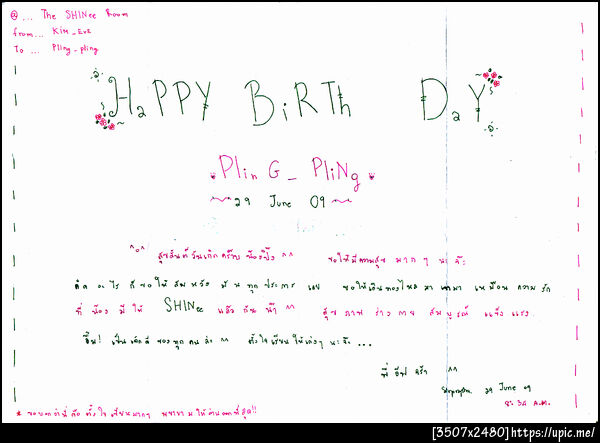 @ ... The SHINee Room
from... Kim_Eve
To ... Pling_pling
HaPPY BiRTh DaY
Plin G_ PliNg
~ 29 June 09 ~
^o^ สุขสันต์วันเกิดครับน้องปิ๊ง ^^ ขอให้มีความสุข มาก ๆ น่ะจ๊ะ
คิด อะไร ก็ ขอให้ สม หวัง ทุกประการ เลย ขอให้เงินทองไหล มา เทมา เหมือน ความ รัก
ที่ น้อง มี ให้ SHINee แล้ว กัน น๊า ^^ สุข ภาพ ร่าง กาย สมบูรณ์ แข็ง แรง
เป็น เด็กดี ของ ทุก คน ล่ะ ^^ ตั้งใจ เรียน ให้เก่งๆ นะ จ๊ะ ...
พี่ อีฟ คร้า ^^
29 June 09
A.M.
* ตั้งใจ เรียน มากๆ พยายาม ให้ ที่สุด!!
[3507x2480]https://upic.me/